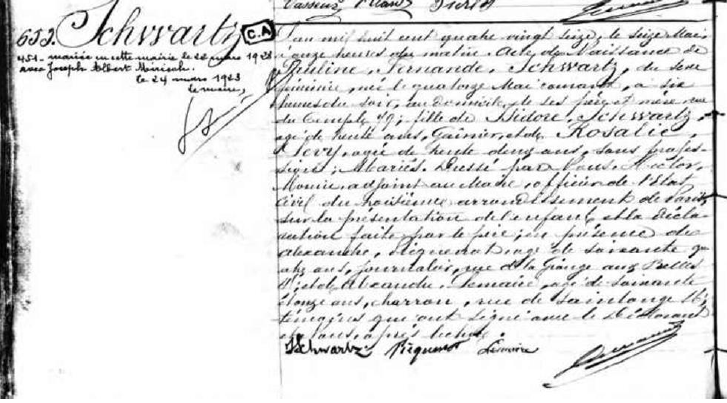 633. Schwartz
C.A
451. mariée en cette mairie le 22 mars 1923
avec Joseph Albert
le 24 mars 1923
le maire,
L'an mil huit cent quatre vingt seize, le seize Mai,
à onze heures du matin. Acte de Naissance de
Pauline, Fernande, Schwartz, du sexe
féminin, née le quatorze Mai courant, à six
heures du soir, au domicile de ses père et mère rue
du Temple 79; fille de Isidore, Schwartz,
agé de trente ans, Gainier, et de Rosalie,
Levy, agée de trente deux ans, sans profes-
sion; Mariés. Dressé par Nous, Hector,
adjoint au Maire, officier de l'Etat
Civil du troisième arrondissement de Paris,
sur la présentation de l'enfant et la décla-
ration faite par le père; en présence de
Alexandre, agé de soixante
ans, journalier, rue de la Grange aux Belles
et de Alexandre, Lemaire, agé de soixante
onze ans, charron, rue de
témoins qui ont signé avec le déclarant
et Nous, après lecture.
Schwartz Lemaire